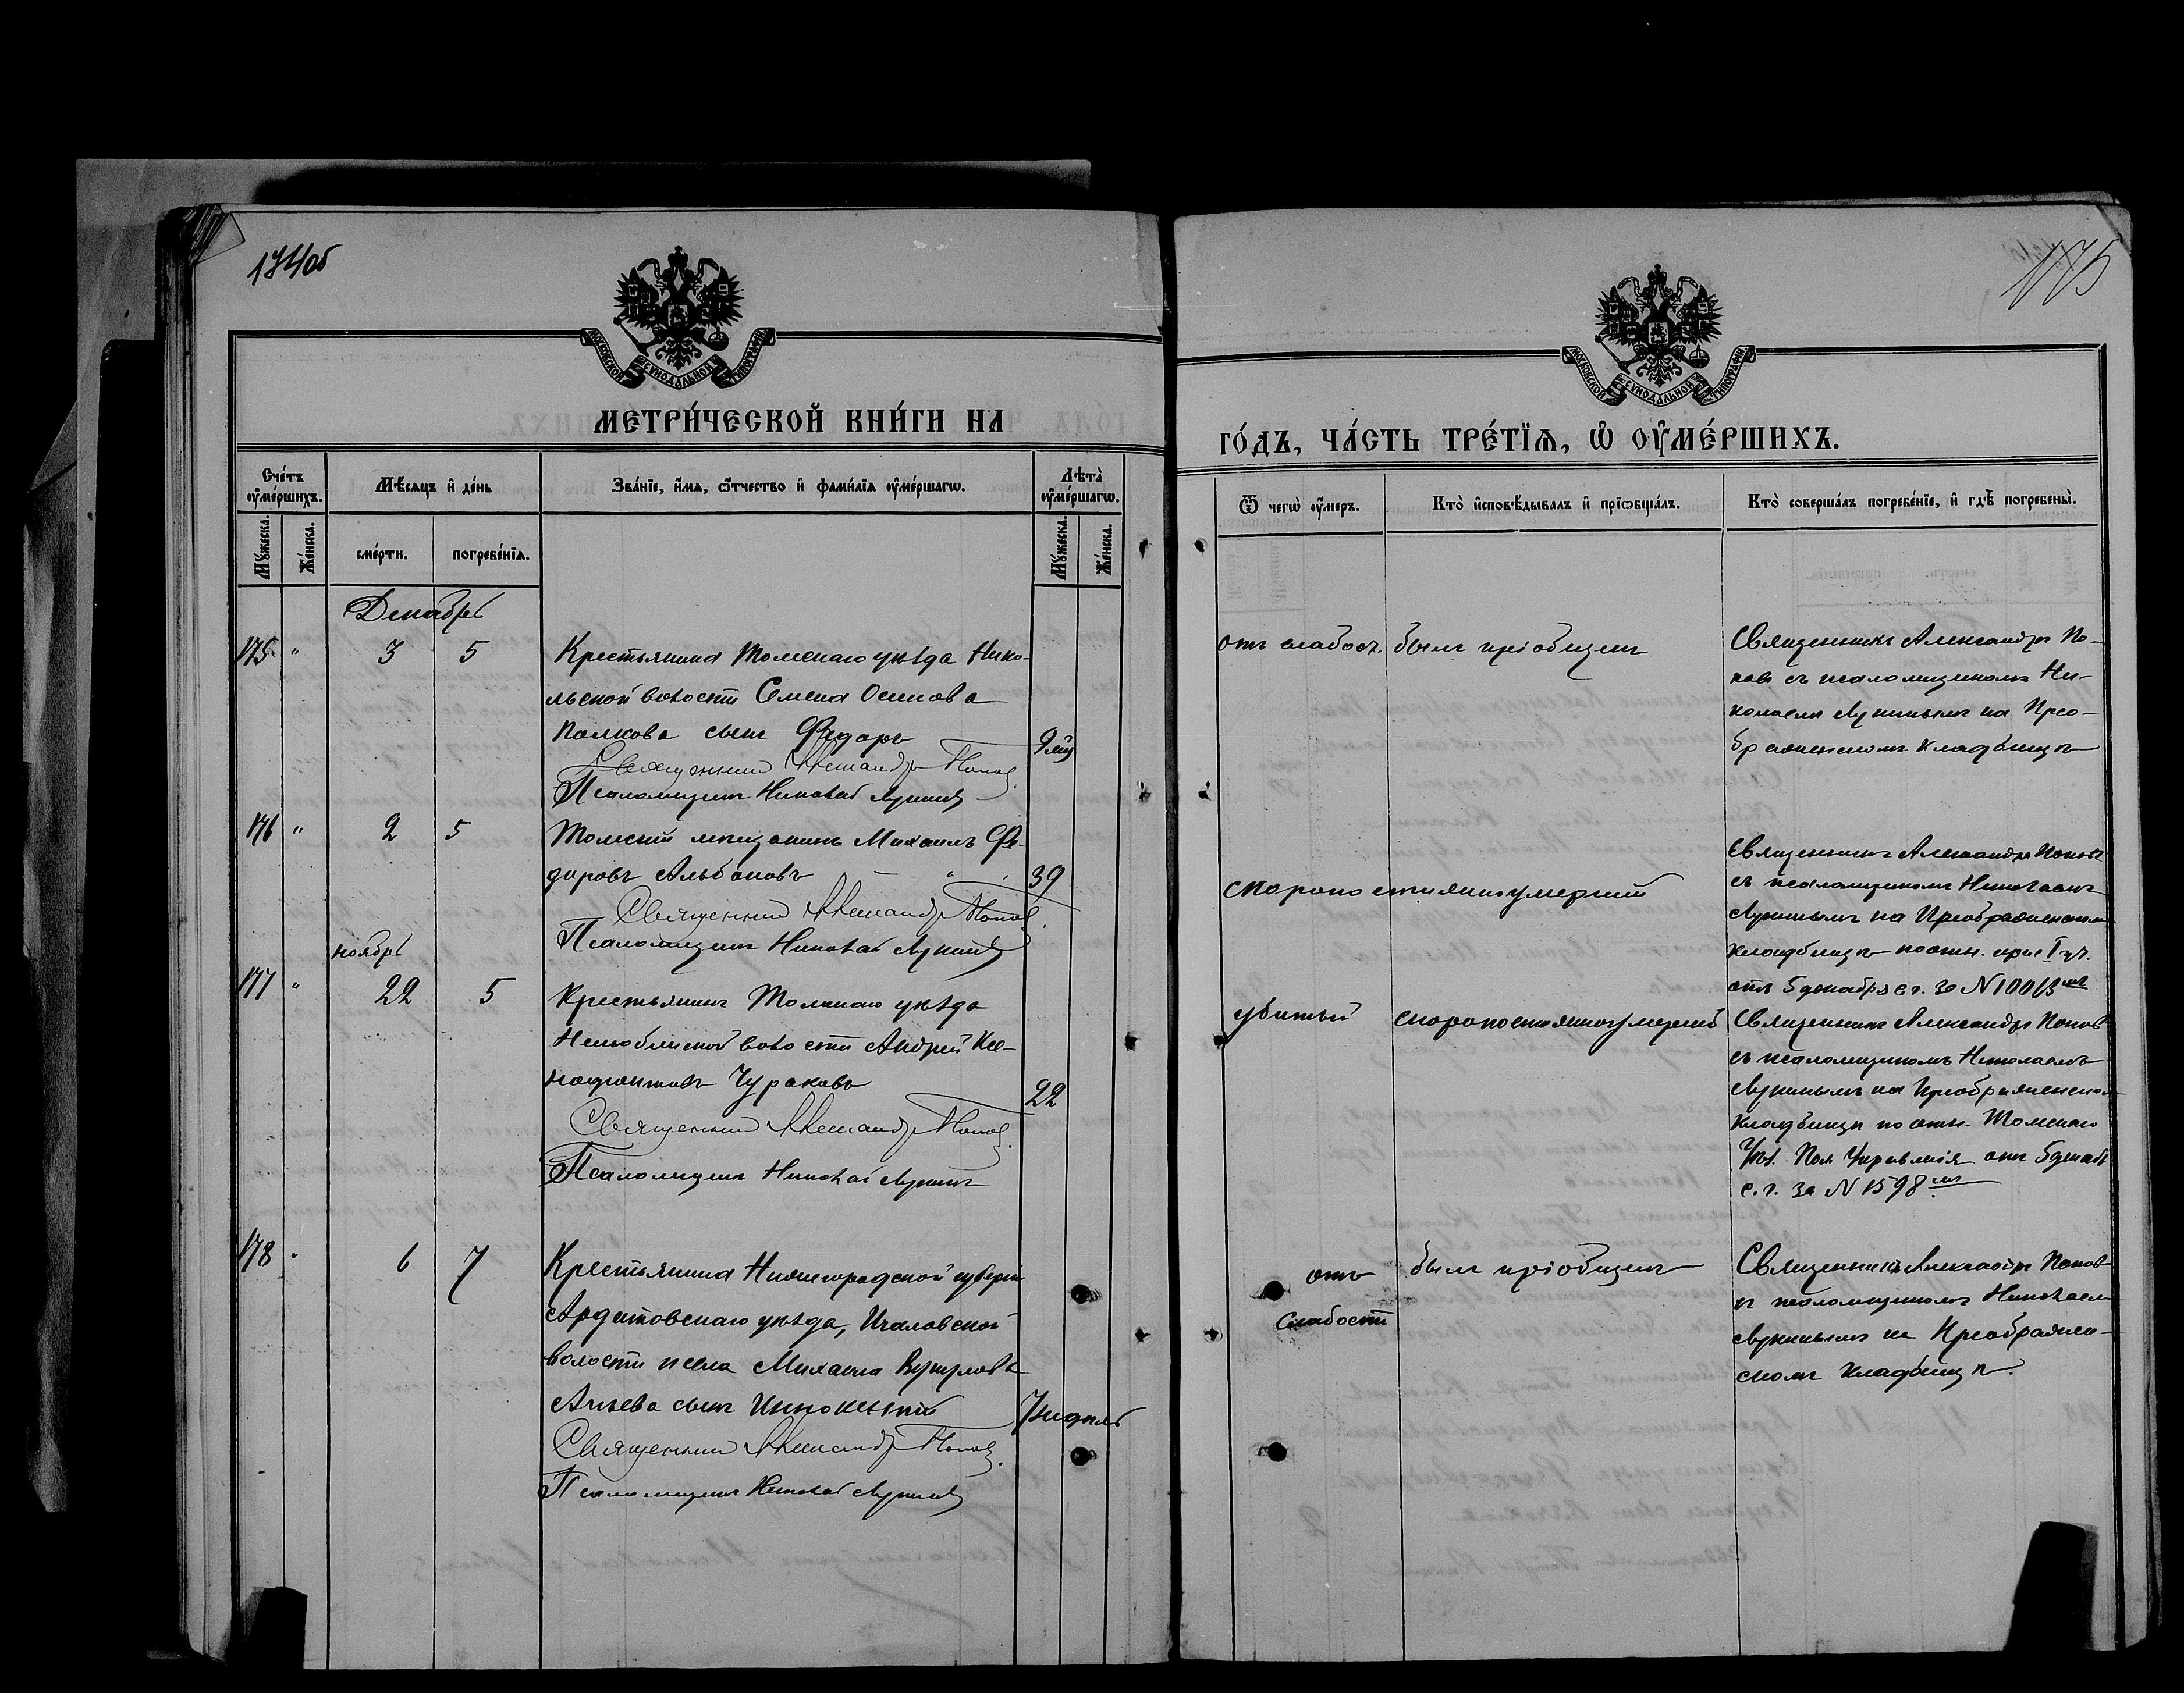 174об
МОСКОВСКОЙ СѴНОДАЛЬНОЙ ТИПОГРАФІИ
МЕТРИ́ЧЕСКОЙ КНИ́ГИ НА
Сче́тъ оу҆ме́ршихъ.
Мѣ́сяцъ и҆ де́нь
Зва́нїе, и҆́мя, ѻ҆́тчество и҆ фами́лїя оу҆ме́ршагѡ.
Лѣ́та оу҆ме́ршагѡ.
Мꙋ́жеска.
Же́нска.
сме́рти.
погребе́нїѧ.
Мꙋ́жеска.
Же́нска.
Декабрь
175 " 3 5 Крестьянина Томскаго уѣзда Нико-
льской волости Семена Осипова
Полкова сынъ Федоръ 9 мц
Священникъ Александръ Поповъ
Псаломщикъ Николай Лукинъ
176 " 2 5 Томскій мѣщанинъ Михаилъ Фе-
доровъ Альбановъ 39
Священникъ Александръ Поповъ
Псаломщикъ Николай Лукинъ
ноябрь
177 " 22 5 Крестьянинъ Томскаго уѣзда
Нелюбинской волости Андрей Ксе-
нофонтовъ Чураковъ 22
Священникъ Александръ Поповъ
Псаломщикъ Николай Лукинъ
178 " 6 7 Крестьянина Нижегородской губерніи
Ардатовскаго уѣзда, Ичаловской
волости и села Михаила Вукулова
сынъ Иннокентій 7 недѣль
Священникъ Александръ Поповъ
Псаломщикъ Николай Лукинъ
175
МОСКОВСКОЙ СѴНОДАЛЬНОЙ ТИПОГРАФІИ
ГО́ДЪ, ЧА́СТЬ ТРЕ́ТЇѦ, Ѡ҆ ОУ҆МЕ́РШИХЪ.
Ѿ чегѡ̀ оу҆́меръ.
Кто̀ и҆сповѣ́дывалъ и҆ прїѡбща́лъ.
Кто̀ соверша́лъ погребе́нїе, и҆ гдѣ̀ погребены̀.
отъ слабос. былъ пріобщенъ
Священникъ Александръ По-
повъ съ псаломщикомъ Ни-
колаемъ Лукинымъ на Прео-
браженскомъ кладбищѣ
скоропостижно умершій
Священникъ Александръ Поповъ
съ псаломщикомъ Николаемъ
Лукинымъ на Преображенскомъ
кладбищѣ по отн. прис I уч.
отъ 5 декабря с г. за N 10013
убитый скоропостижно умершій
Священникъ Александръ Поповъ
съ псаломщикомъ Николаемъ
Лукинымъ на Преображенском
кладбищѣ по отн. Томскаго
Уѣз. Пол. Управленія отъ 5 декаб
с. г. за N 1598
отъ слабости былъ пріобщенъ
Священникъ Александръ Поповъ
съ псаломщикомъ Николаем
Лукинымъ на Преображен-
скомъ кладбищѣ.